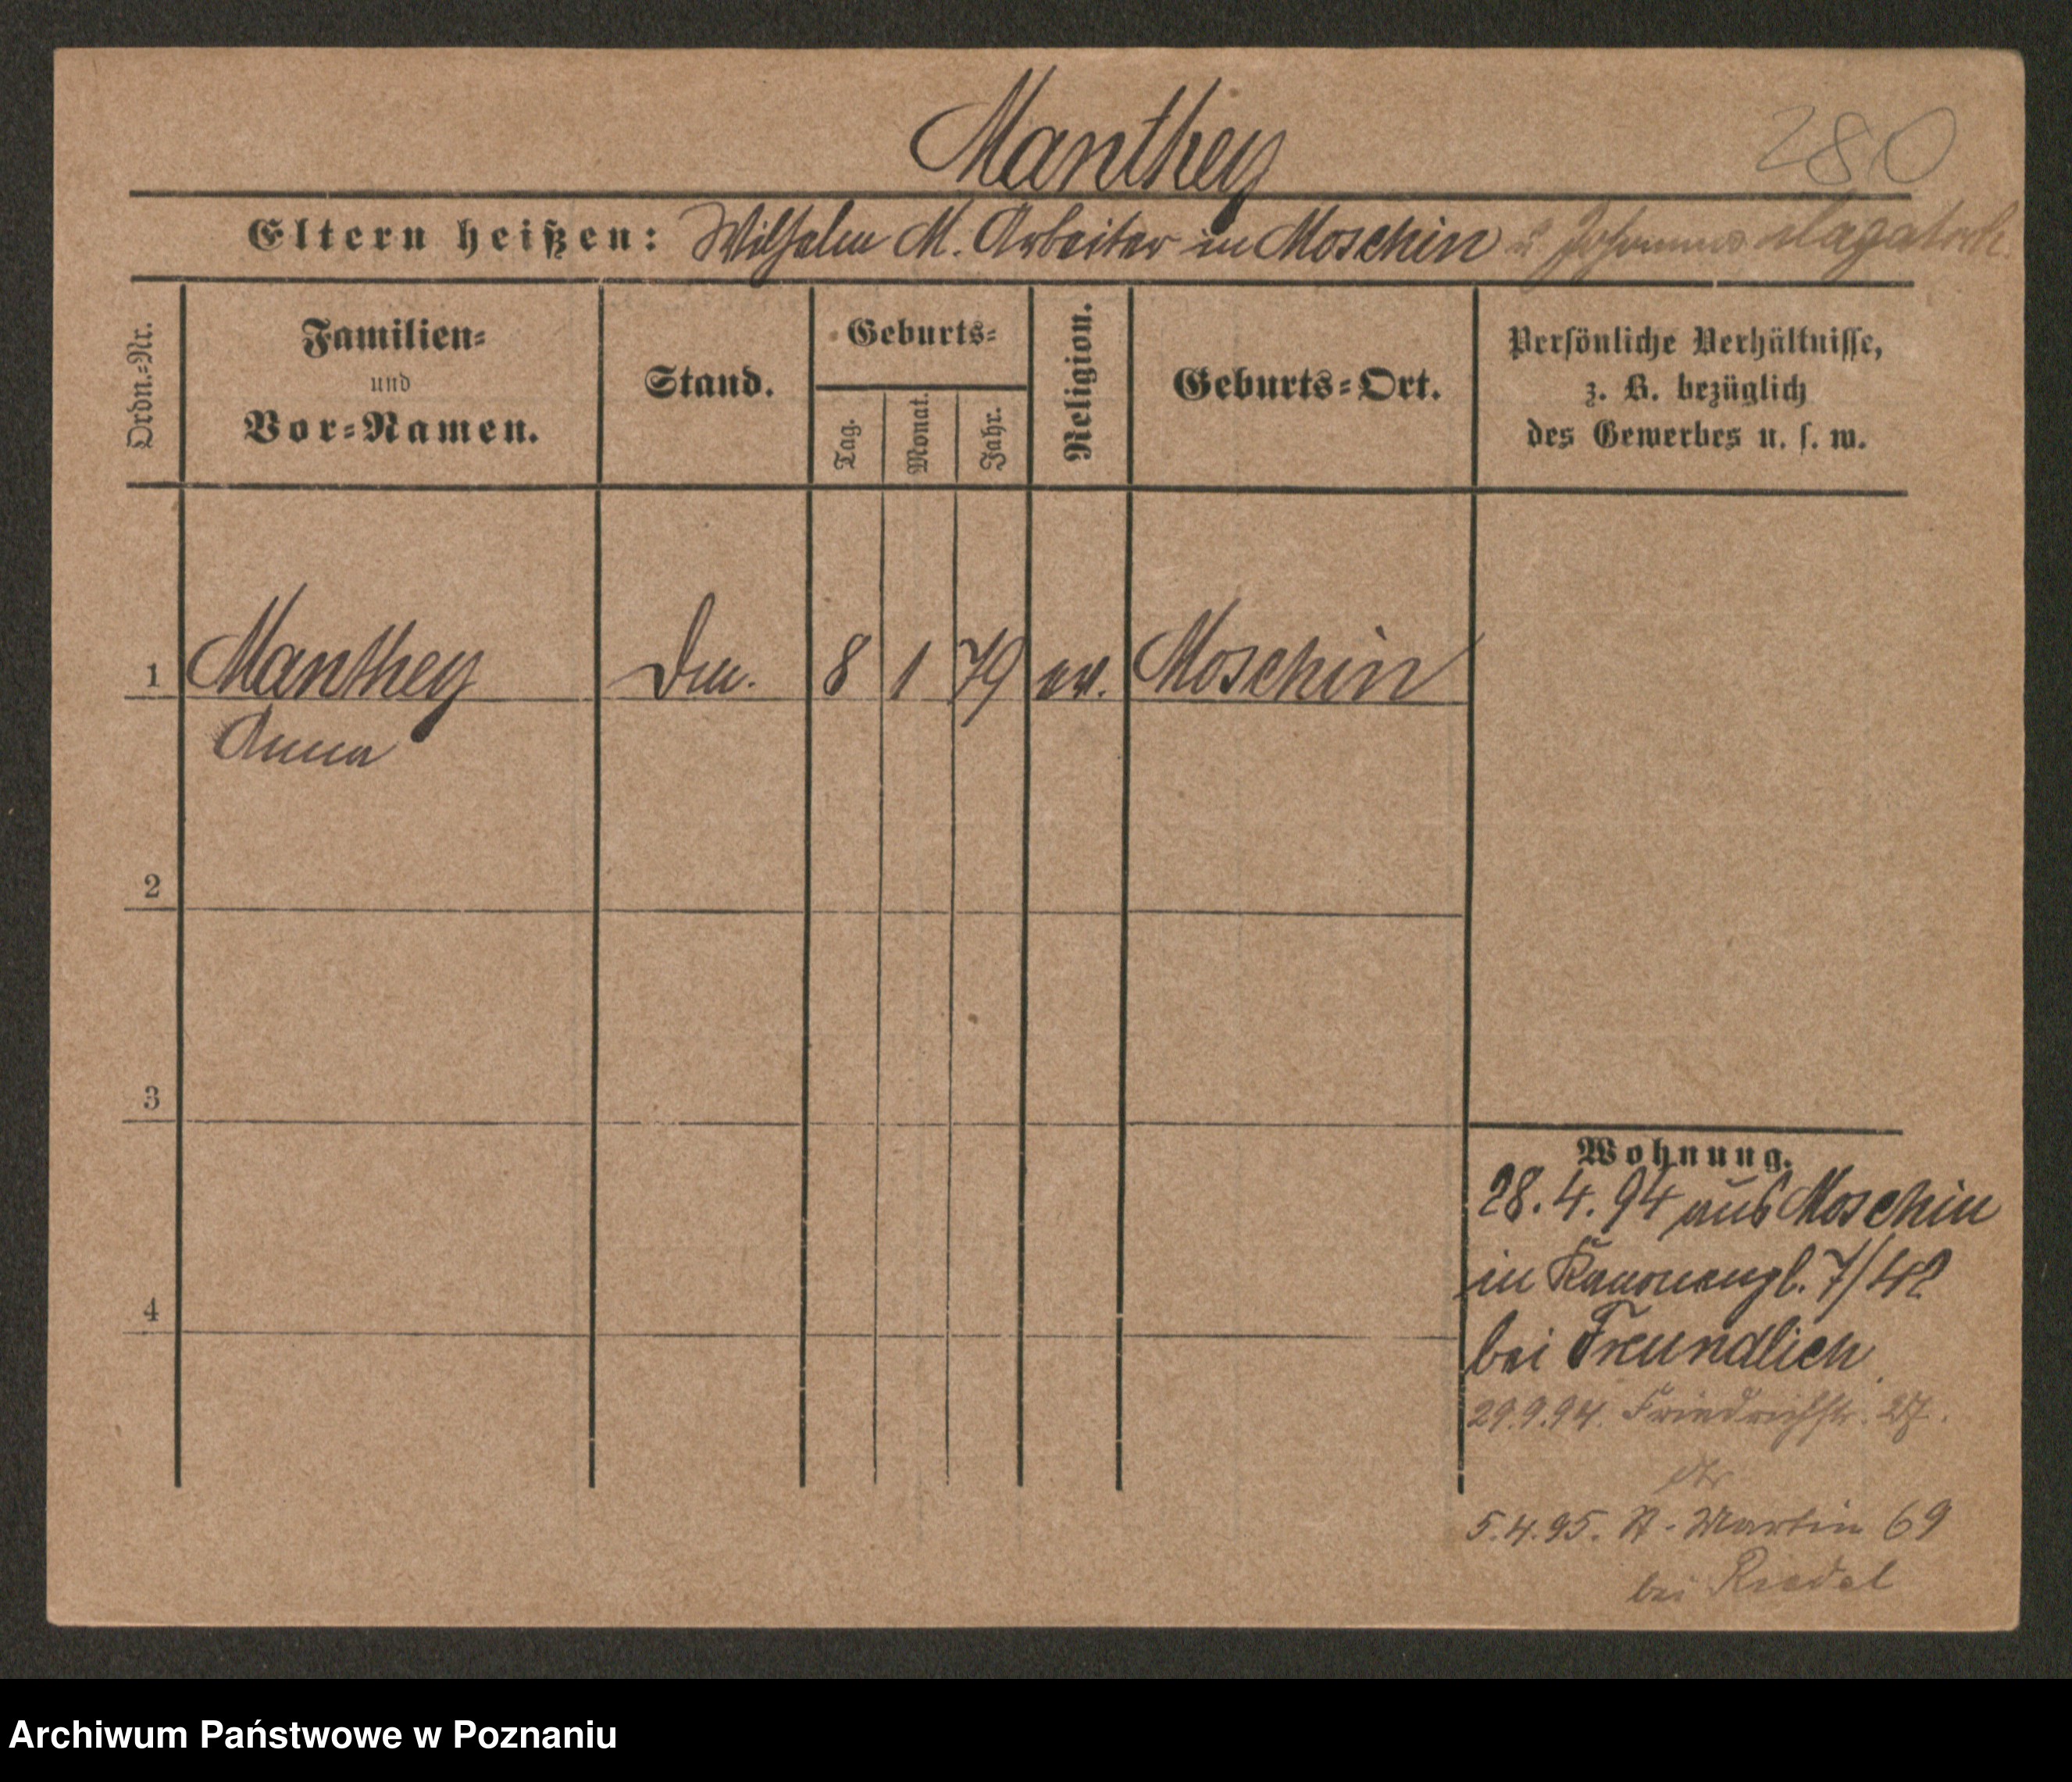 Manthey
280
Eltern heißen: Wilhelm M. Arbeiter in Moschin u. Johanna
Ordn.-Nr.
Familien-
und
Vor-Namen.
Stand.
Geburts-
Tag.
Monat.
Jahr.
Religion.
Geburts-Ort.
Persönliche Verhältnisse,
z. B. bezüglich
des Gewerbes u. s. w.
1 Manthey 8 1 79 ev. Moschin
Anna
2
3
4
Wohnung.
28.4.94 aus Moschin
in Kanonenpl. 7/42
bei Freundlich
29.9.94. Friedrichstr. 27.
5.4.95. St. Martin 69
bei Riedel
Archiwum Państwowe w Poznaniu